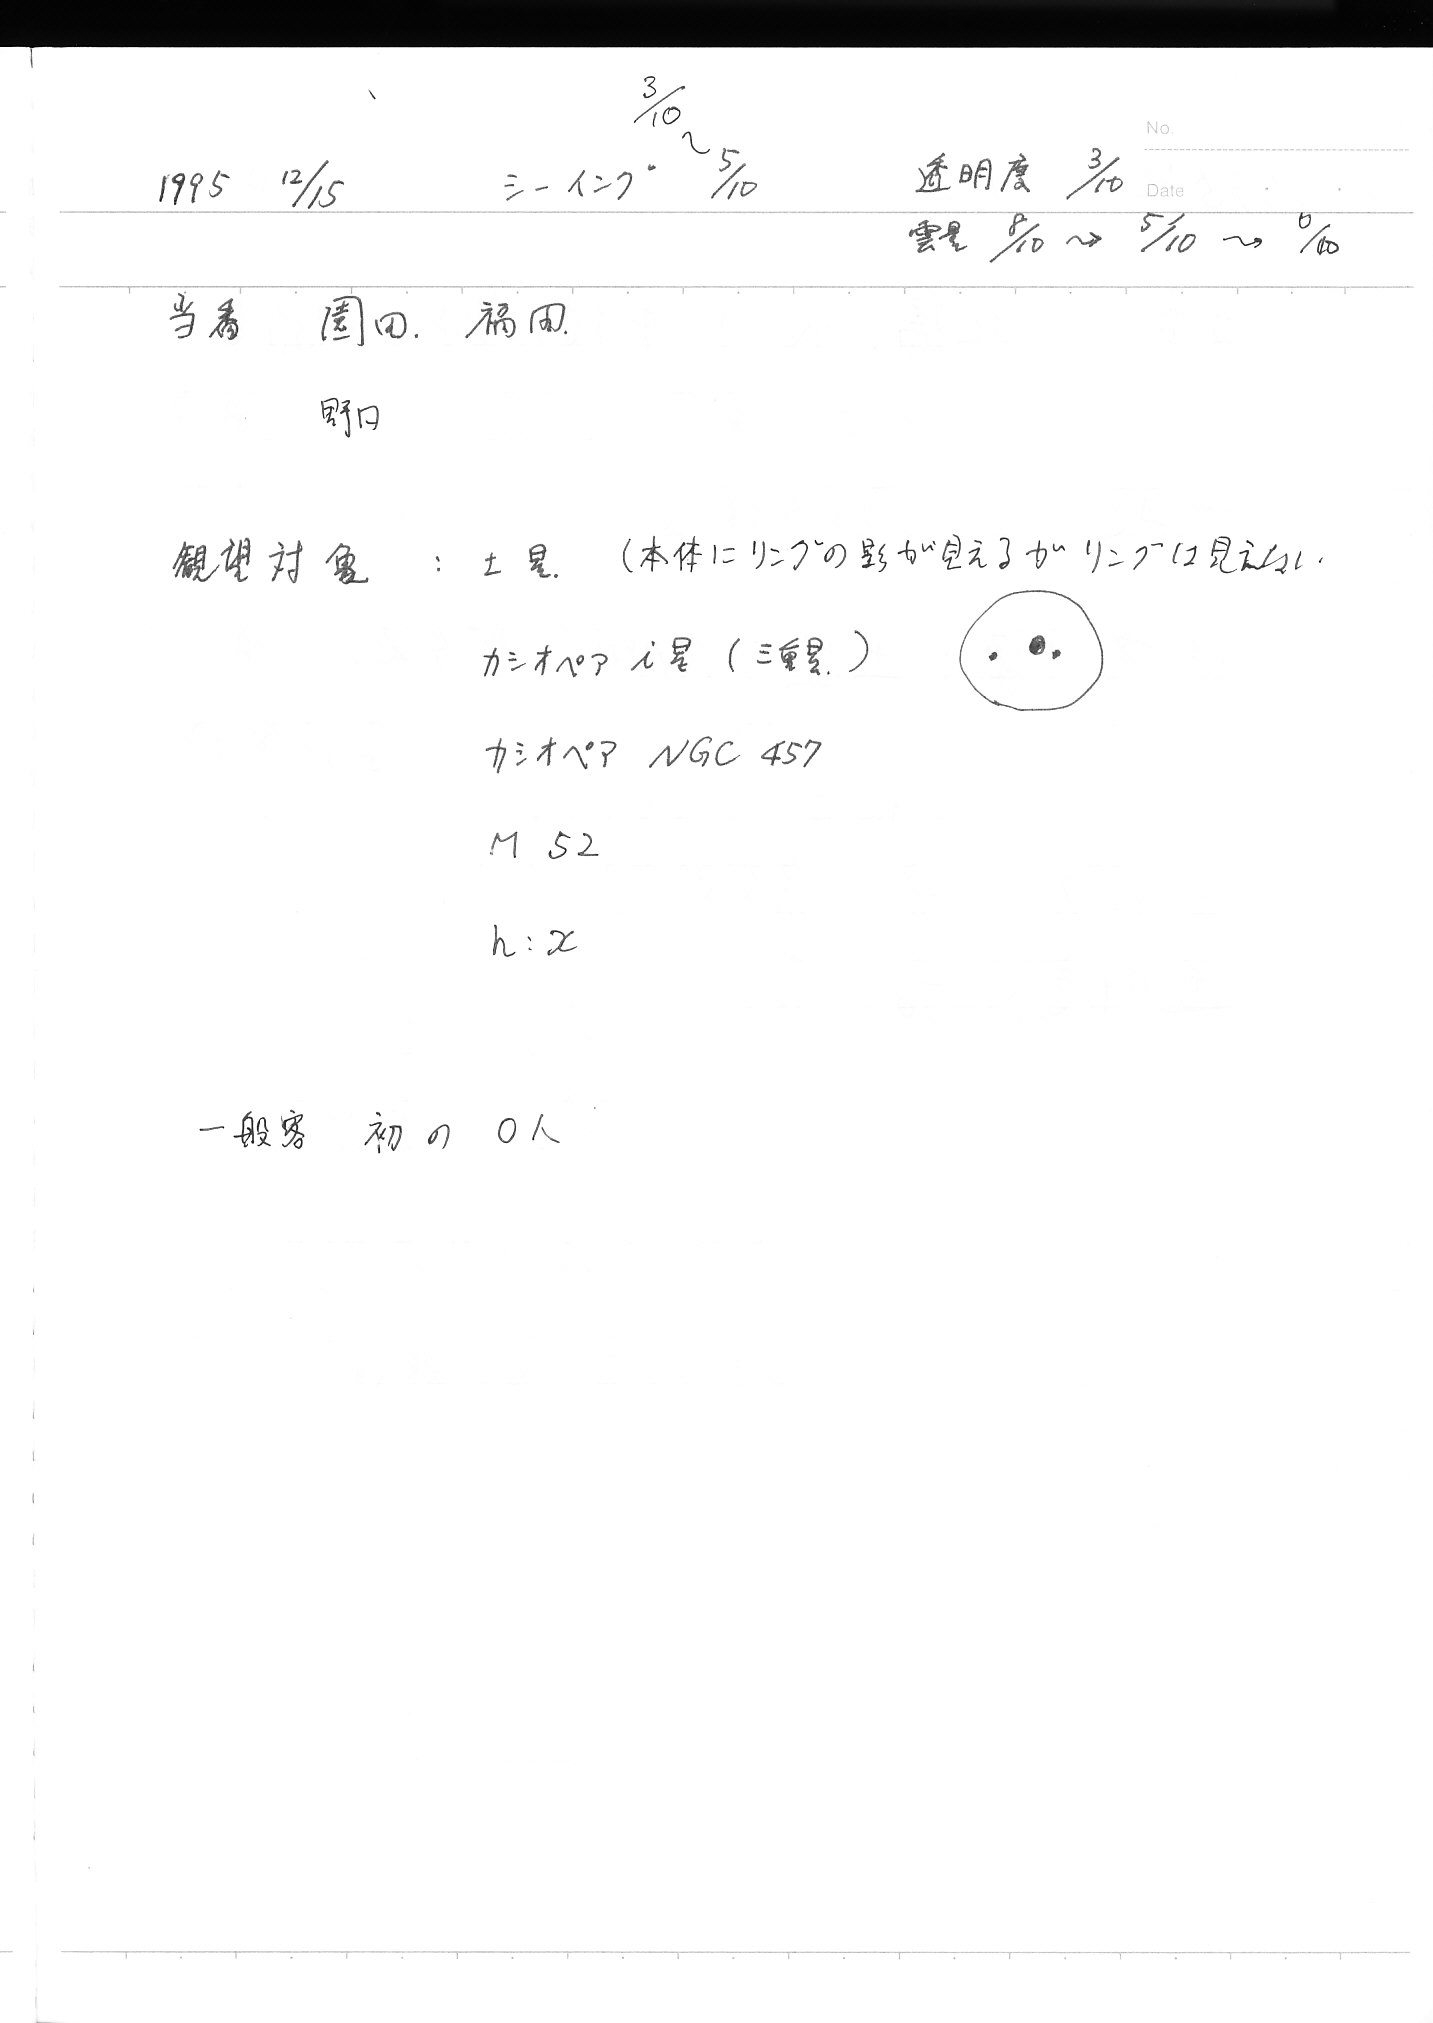 3/10
No.
1995 12/15 シーイング 〜 5/10 透明度 3/10 Date
雲量 8/10 〜→ 5/10 〜→ 0/10
当番 園田. 福田.
野口
観望対象 : 土星. (本体にリングの影が見えるがリングは見えない.
カシオペア i星 (三重星.)
カシオペア NGC 457
M 52
h:χ
一般客 初の 0人